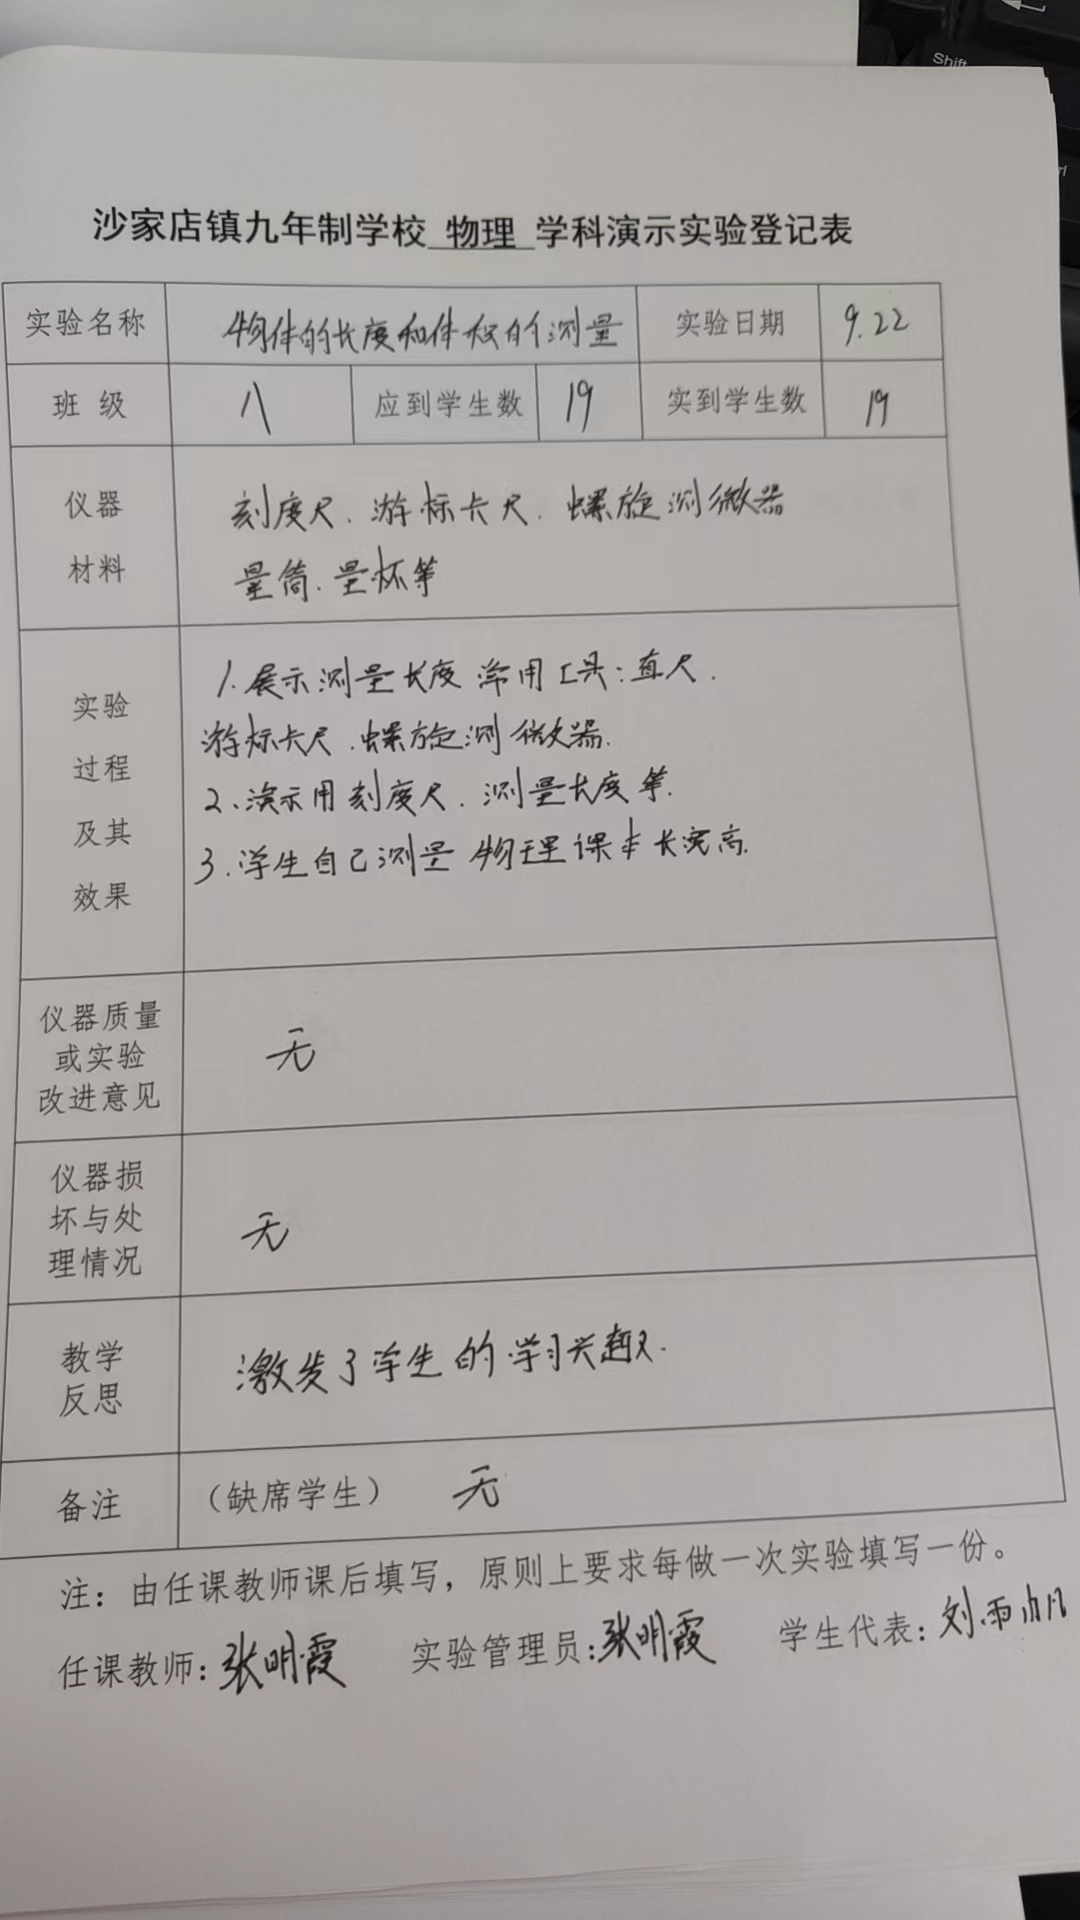 Shift
沙家店镇九年制学校 物理 学科演示实验登记表
实验名称 物体的长度和体积的测量 实验日期 9.22
班 级 八 应到学生数 19 实到学生数 19
仪器
材料
刻度尺.游标卡尺.螺旋测微器
量筒.量杯等
实验
过程
及其
效果
1.展示测量长度常用工具:直尺.
游标卡尺.螺旋测微器.
2、演示用刻度尺.测量长度等.
3.学生自己测量物理课本长宽高.
仪器质量
或实验
改进意见
无
仪器损
坏与处
理情况
无
教学
反思
激发了学生的学习兴趣.
备注 （缺席学生） 无
注：由任课教师课后填写，原则上要求每做一次实验填写一份。
任课教师：张明霞 实验管理员：张明霞 学生代表：刘雨